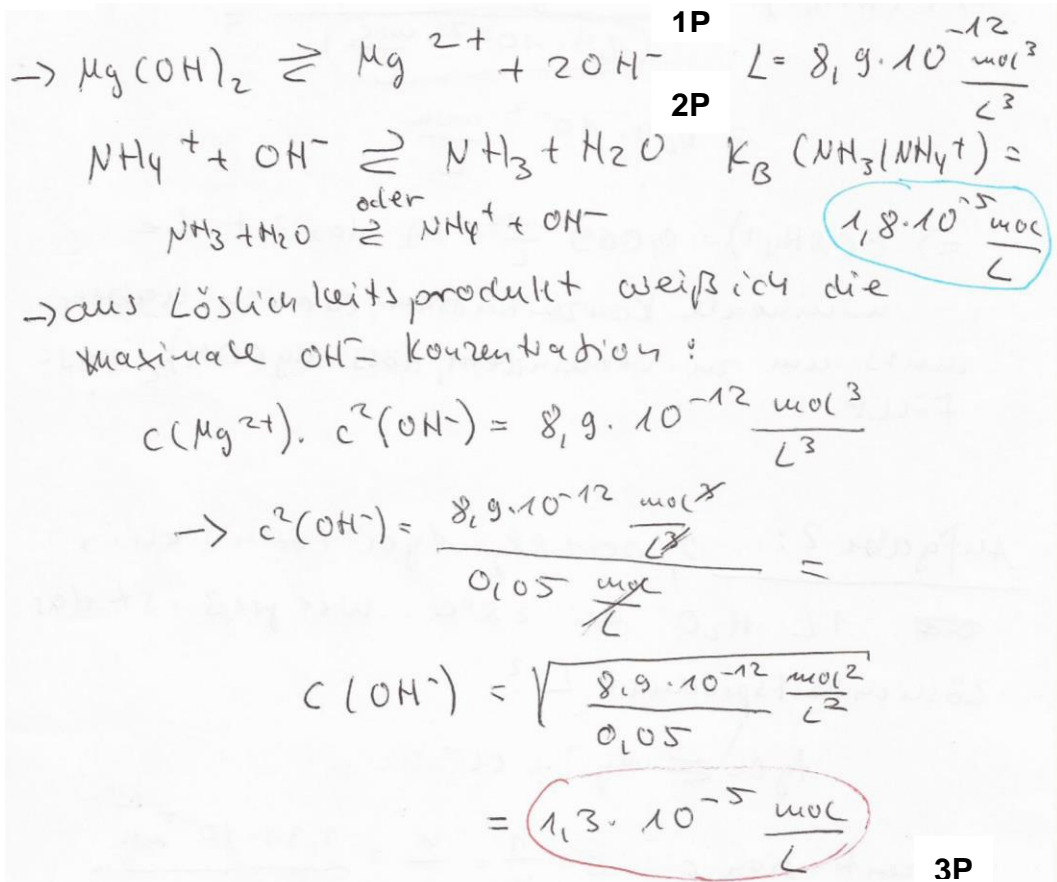 1P
→ Mg(OH)₂ ⇌ Mg²⁺ + 2OH⁻ L = 8,9·10⁻¹² mol³/L³
2P
NH4⁺ + OH⁻ ⇌ NH3 + H2O KB (NH3/NH4⁺) =
oder
NH3 + H2O ⇌ NH4⁺ + OH⁻ 1,8·10⁻⁵ mol/L
→ aus Löslichkeitsprodukt weiß ich die
maximale OH⁻ Konzentration :
c(Mg²⁺) · c²(OH⁻) = 8,9·10⁻¹² mol³/L³
→ c²(OH⁻) = 8,9·10⁻¹² mol³/L³ / 0,05 mol/L =
c(OH⁻) = √(8,9·10⁻¹²/0,05 mol²/L²)
= 1,3·10⁻⁵ mol/L
3P